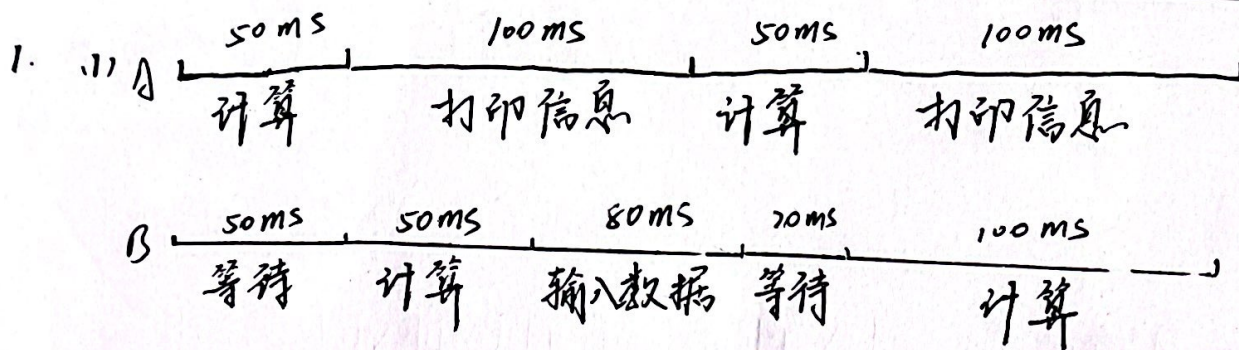 50ms 100ms 50ms 100ms
1. (1) A
计算 打印信息 计算 打印信息
50ms 50ms 80ms 20ms 100ms
B
等待 计算 输入数据 等待 计算